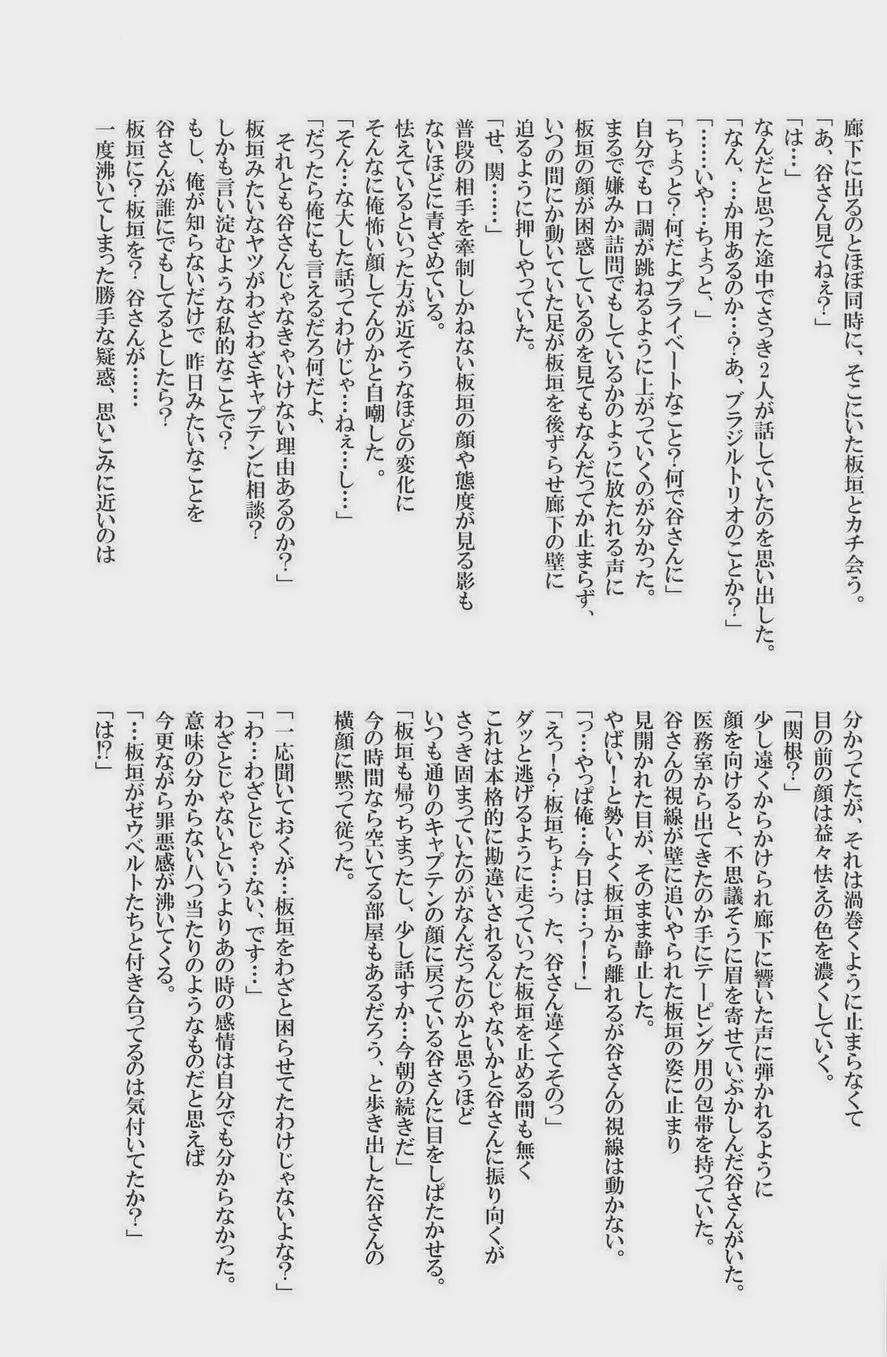 廊下に出るのとほぼ同時に、そこにいた板垣とカチ会う。
「あ、谷さん見てねぇ？」
「は…」
なんだと思った途中でさっき2人が話していたのを思い出した。
「なん、…か用あるのか…？あ、ブラジルトリオのことか？」
「……いや…ちょっと、」
「ちょっと？何だよプライベートなこと？何で谷さんに」
自分でも口調が跳ねるように上がっていくのが分かった。
まるで嫌みか詰問でもしているかのように放たれる声に
板垣の顔が困惑しているのを見てもなんだってか止まらず、
いつの間にか動いていた足が板垣を後ずらせ廊下の壁に
迫るように押しやっていた。
「せ、関……」
普段の相手を牽制しかねない板垣の顔や態度が見る影も
ないほどに青ざめている。
怯えているといった方が近そうなほどの変化に
そんなに俺怖い顔してんのかと自嘲した。
「そん…な大した話ってわけじゃ…ねぇ…し…」
「だったら俺にも言えるだろ何だよ、
それとも谷さんじゃなきゃいけない理由あるのか？」
板垣みたいなヤツがわざわざキャプテンに相談？
しかも言い淀むような私的なことで？
もし、俺が知らないだけで 昨日みたいなことを
谷さんが誰にでもしてるとしたら？
板垣に？板垣を？ 谷さんが……
一度沸いてしまった勝手な疑惑、思いこみに近いのは
分かってたが、それは渦巻くように止まらなくて
目の前の顔は益々怯えの色を濃くしていく。
「関根？」
少し遠くからかけられ廊下に響いた声に弾かれるように
顔を向けると、不思議そうに眉を寄せていぶかしんだ谷さんがいた。
医務室から出てきたのか手にテーピング用の包帯を持っていた。
谷さんの視線が壁に追いやられた板垣の姿に止まり
見開かれた目が、そのまま静止した。
やばい！と勢いよく板垣から離れるが谷さんの視線は動かない。
「っ…やっぱ俺…今日は…っ！！」
「えっ！？板垣ちょ…っ た、谷さん違くてそのっ」
ダッと逃げるように走っていった板垣を止める間も無く
これは本格的に勘違いされるんじゃないかと谷さんに振り向くが
さっき固まっていたのがなんだったのかと思うほど
いつも通りのキャプテンの顔に戻っている谷さんに目をしぱたかせる。
「板垣も帰っちまったし、少し話すか…今朝の続きだ」
今の時間なら空いてる部屋もあるだろう、と歩き出した谷さんの
横顔に黙って従った。
「一応聞いておくが…板垣をわざと困らせてたわけじゃないよな？」
「わ…わざとじゃ…ない、です…」
わざとじゃないというよりあの時の感情は自分でも分からなかった。
意味の分からない八つ当たりのようなものだと思えば
今更ながら罪悪感が沸いてくる。
「…板垣がゼウベルトたちと付き合ってるのは気付いてたか？」
「は!?」